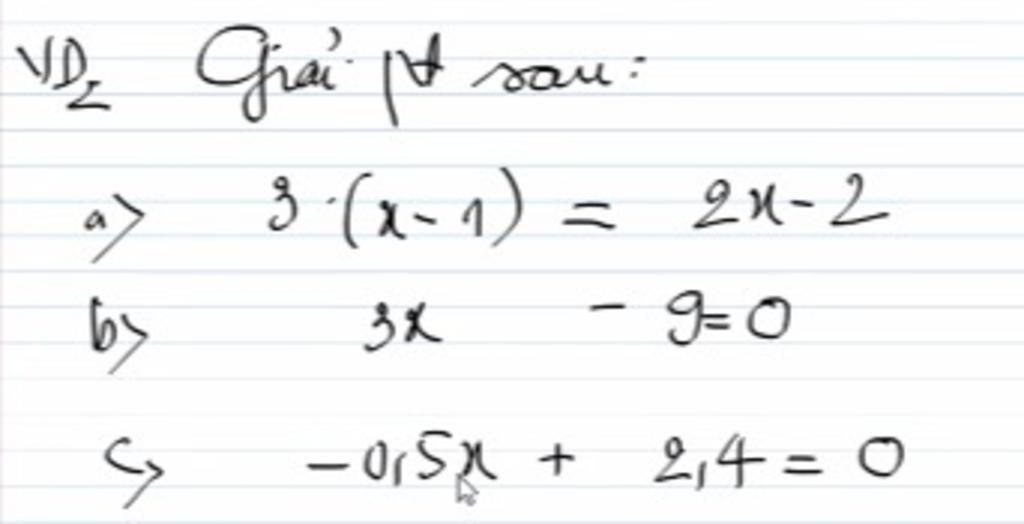 VD2 Giải pt sau:
a> 3.(x-1) = 2x-2
b> 3x - 9=0
c> -0,5x + 2,4 = 0